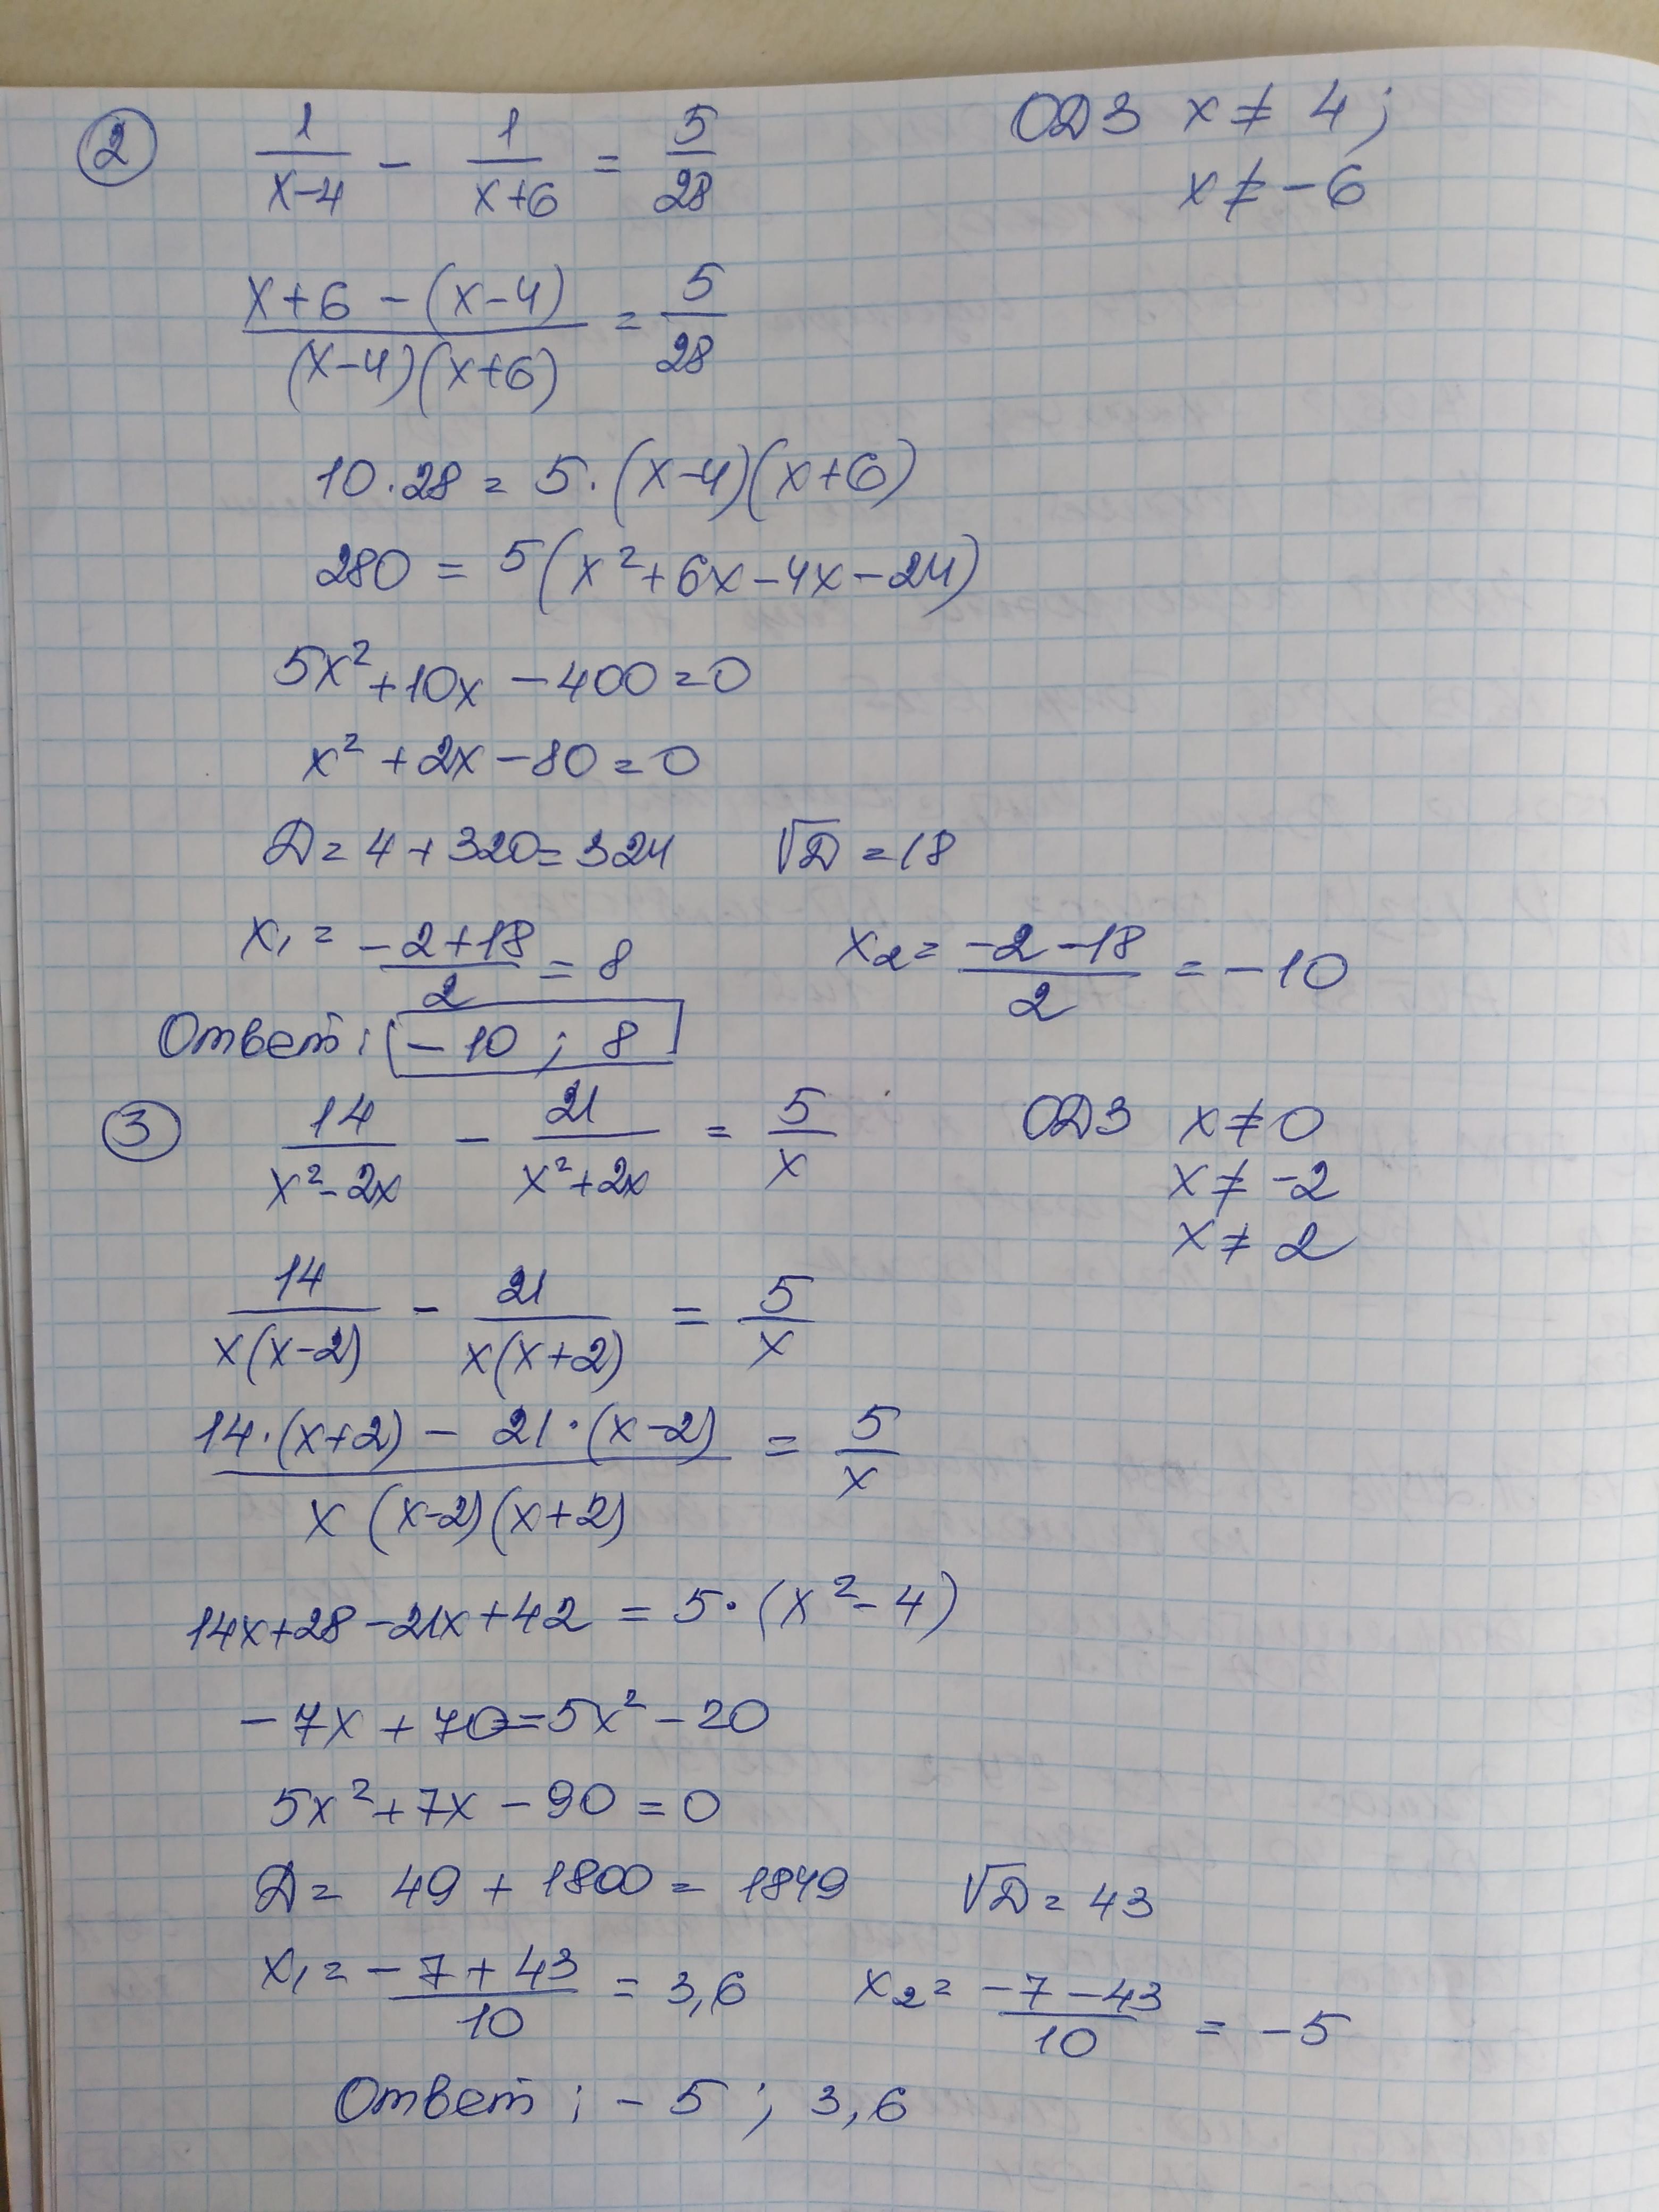 ② 1/(x-4) - 1/(x+6) = 5/28 ОДЗ x ≠ 4;
x ≠ -6
(x+6-(x-4))/((x-4)(x+6)) = 5/28
10·28 = 5·(x-4)(x+6)
280 = 5(x²+6x-4x-24)
5x²+10x-400=0
x²+2x-80=0
Д=4+320=324 √Д=18
x₁ = (-2+18)/2 = 8 x₂ = (-2-18)/2 = -10
Ответ: -10; 8
③ 14/(x²-2x) - 21/(x²+2x) = 5/x ОДЗ x≠0
x ≠ -2
x ≠ 2
14/(x(x-2)) - 21/(x(x+2)) = 5/x
(14·(x+2) - 21·(x-2))/(x(x-2)(x+2)) = 5/x
14x+28-21x+42 = 5·(x²-4)
-7x+70=5x²-20
5x²+7x-90=0
Д= 49+1800=1849 √Д=43
x₁ = (-7+43)/10 = 3,6 x₂ = (-7-43)/10 = -5
Ответ: -5; 3,6